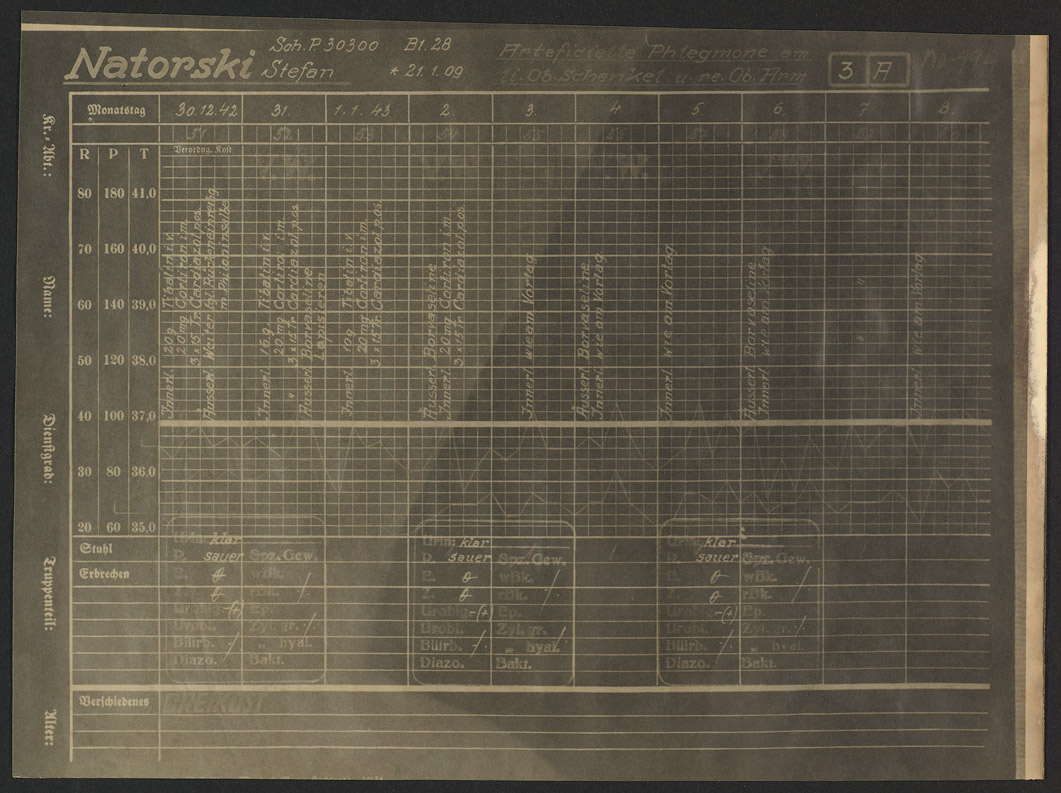 Natorski Stefan
Sch.P.30300 Bl.28
* 21.1.09
Arteficielle Phlegmone am
li.Ob.Schenkel u. re. Ob. Arm
3 A
Monatstag 30.12.42 31. 1.1.43 2. 3. 4. 5. 6. 7. 8.
51 52 53 54 55 56 57
Kr.=Abt.:
Name:
Dienstgrad:
Truppenteil:
Alter:
R P T
Verordng. Kost
80 180 41,0
70 160 40,0
60 140 39,0
50 120 38,0
40 100 37,0
30 80 36,0
20 60 35,0
Innerl. 20g Tibatin i.v.
20mg Cortinon i.m.
3 x 15 Tr. Cardiazol p.os.
Äusserl. Weiter tgl. Rückeneinreibg
m Philoninsalbe
Innerl. 15g. Tibatin i.v.
20mg Cortinon i.m.
3 x 15 Tr. Cardiazol p.os.
Äusserl. Borvaseline
Lapisieren
Innerl. 10g Tibatin i.v.
20mg Cortinon i.m.
3 x 15 Tr. Cardiazol p.os.
Äusserl. Borvaseline
Innerl. 20mg Cortinon i.m.
3 x 15 Tr. Cardiazol p.os.
Innerl. wie am Vortag
Äusserl. Borvaseline
Innerl. wie am Vortag
Innerl. wie am Vortag
Äusserl. Borvaseline
Innerl. wie am Vortag
" "
Innerl. wie am Vortag
Stuhl
Erbrechen
Urin: klar
R. sauer Spz. Gew.
E. θ wBk. /
Z. θ rBk. /
Urobg. -(+) Ep.
Urobl. Zyl. gr. /
Bilirb. / „ hyal.
Diazo. Bakt.
Urin: klar
R. sauer Spz. Gew.
E. θ wBk. /
Z. θ rBk. /
Urobg. -(+) Ep.
Urobl. Zyl. gr. /
Bilirb. / „ hyal.
Diazo. Bakt.
Urin: klar
R. sauer Spz. Gew.
E. θ wBk. /
Z. θ rBk. /
Urobg. -(+) Ep.
Urobl. Zyl. gr. /
Bilirb. / „ hyal.
Diazo. Bakt.
Verschiedenes